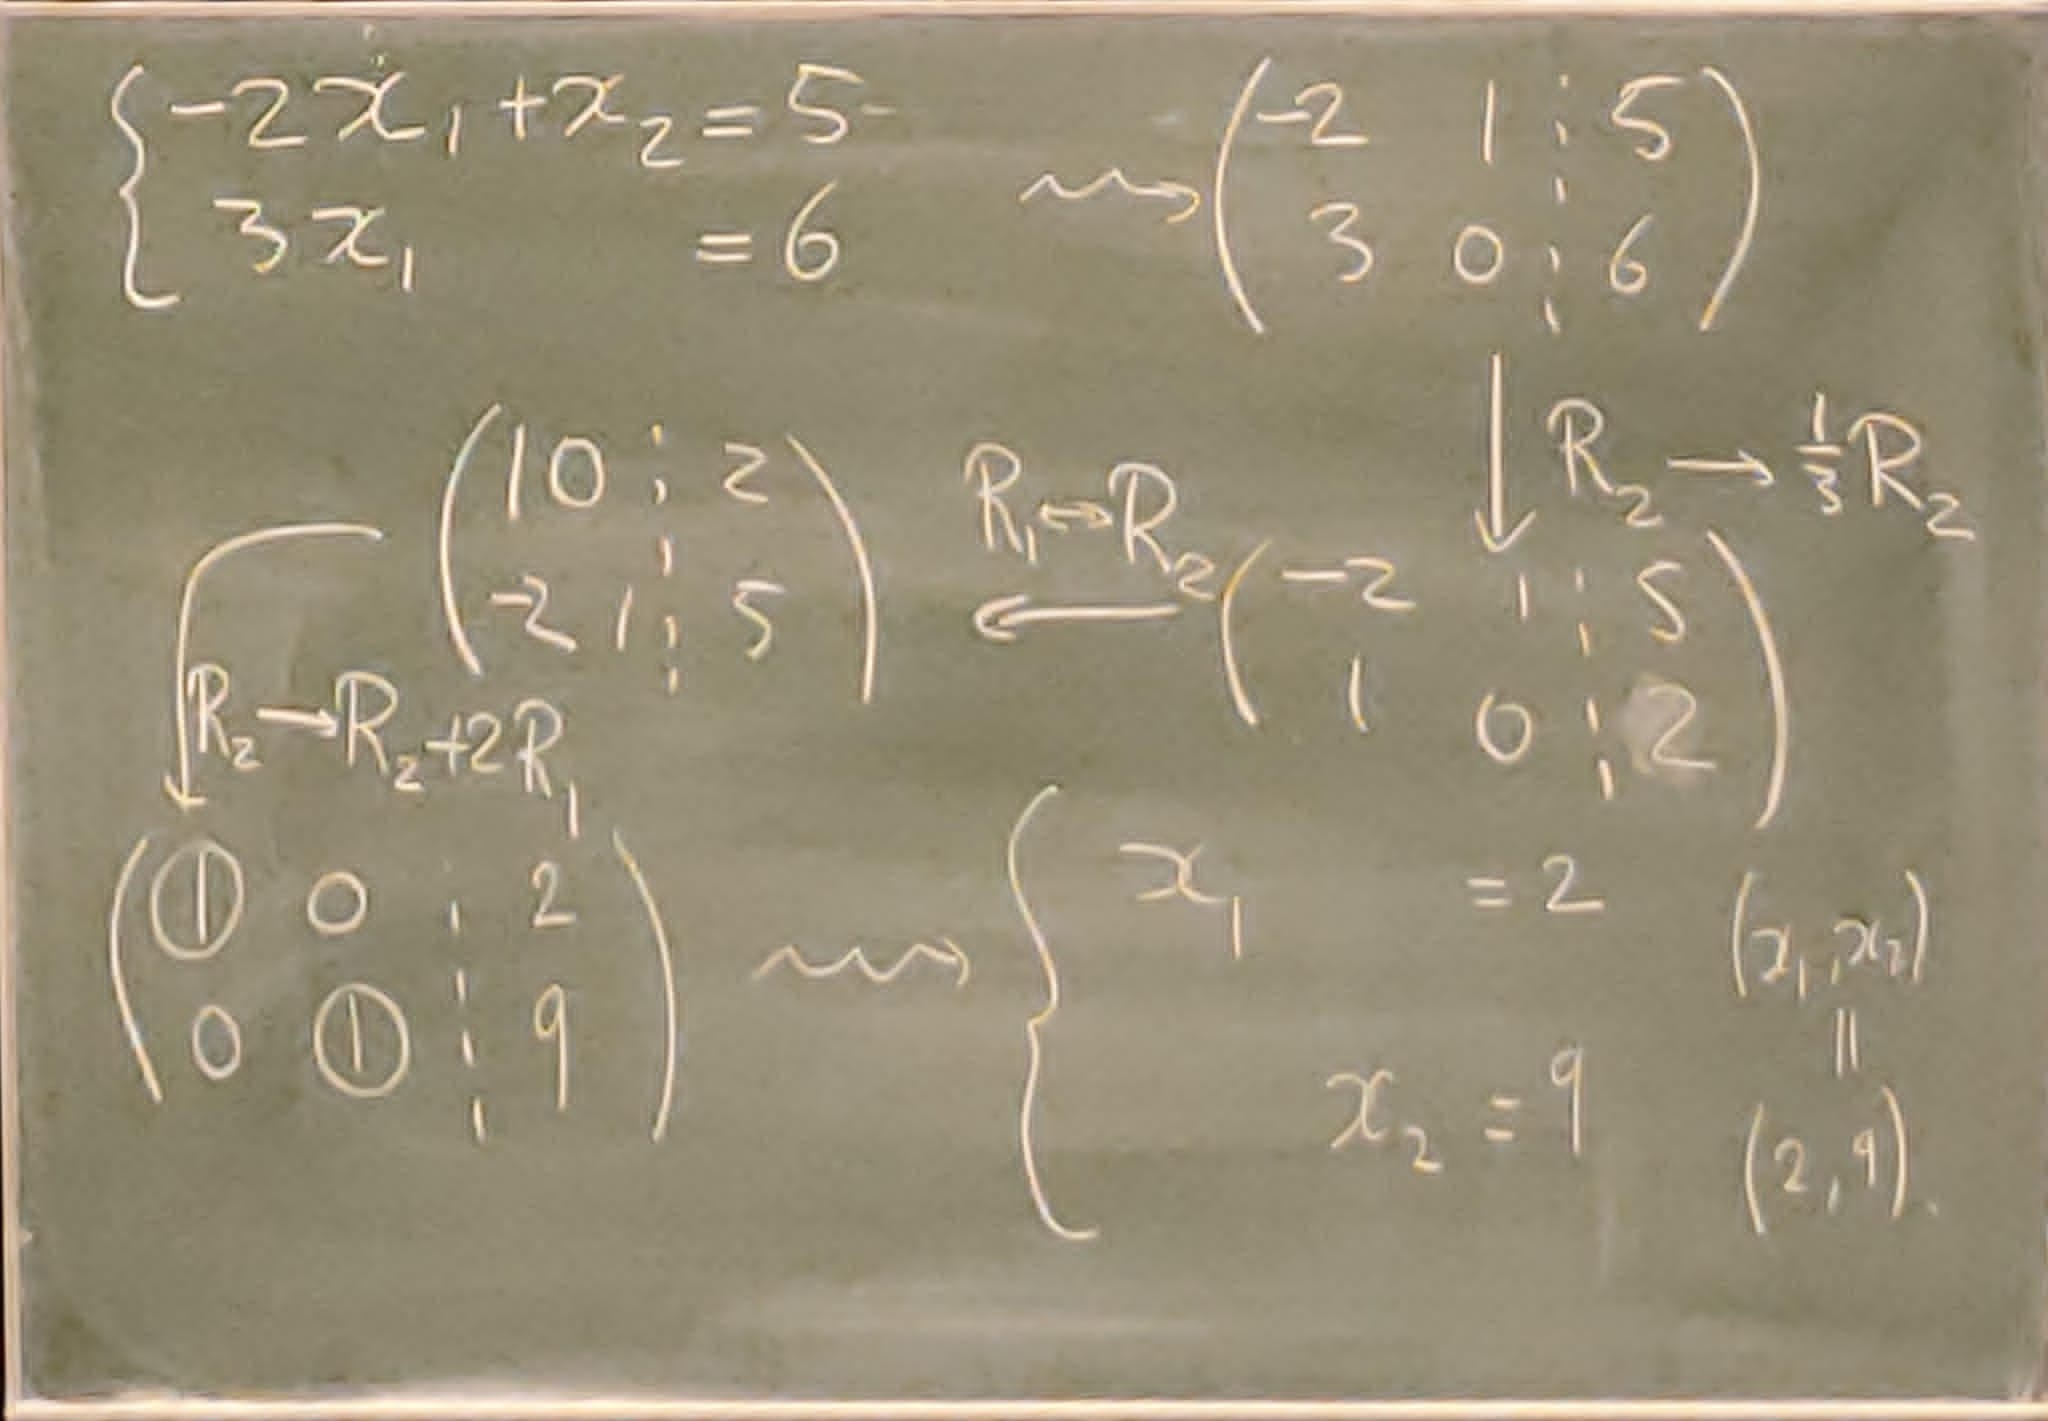 { -2x₁ + x₂ = 5
3x₁ = 6
⇝ ( -2 1 ¦ 5
3 0 ¦ 6 )
↓ R₂ → 1/3 R₂
( -2 1 ¦ 5
1 0 ¦ 2 )
R₁ ↔ R₂
←
( 1 0 ¦ 2
-2 1 ¦ 5 )
R₂ → R₂ + 2R₁
( ① 0 ¦ 2
0 ① ¦ 9 )
⇝ { x₁ = 2
x₂ = 9
(x₁, x₂)
||
(2, 9).